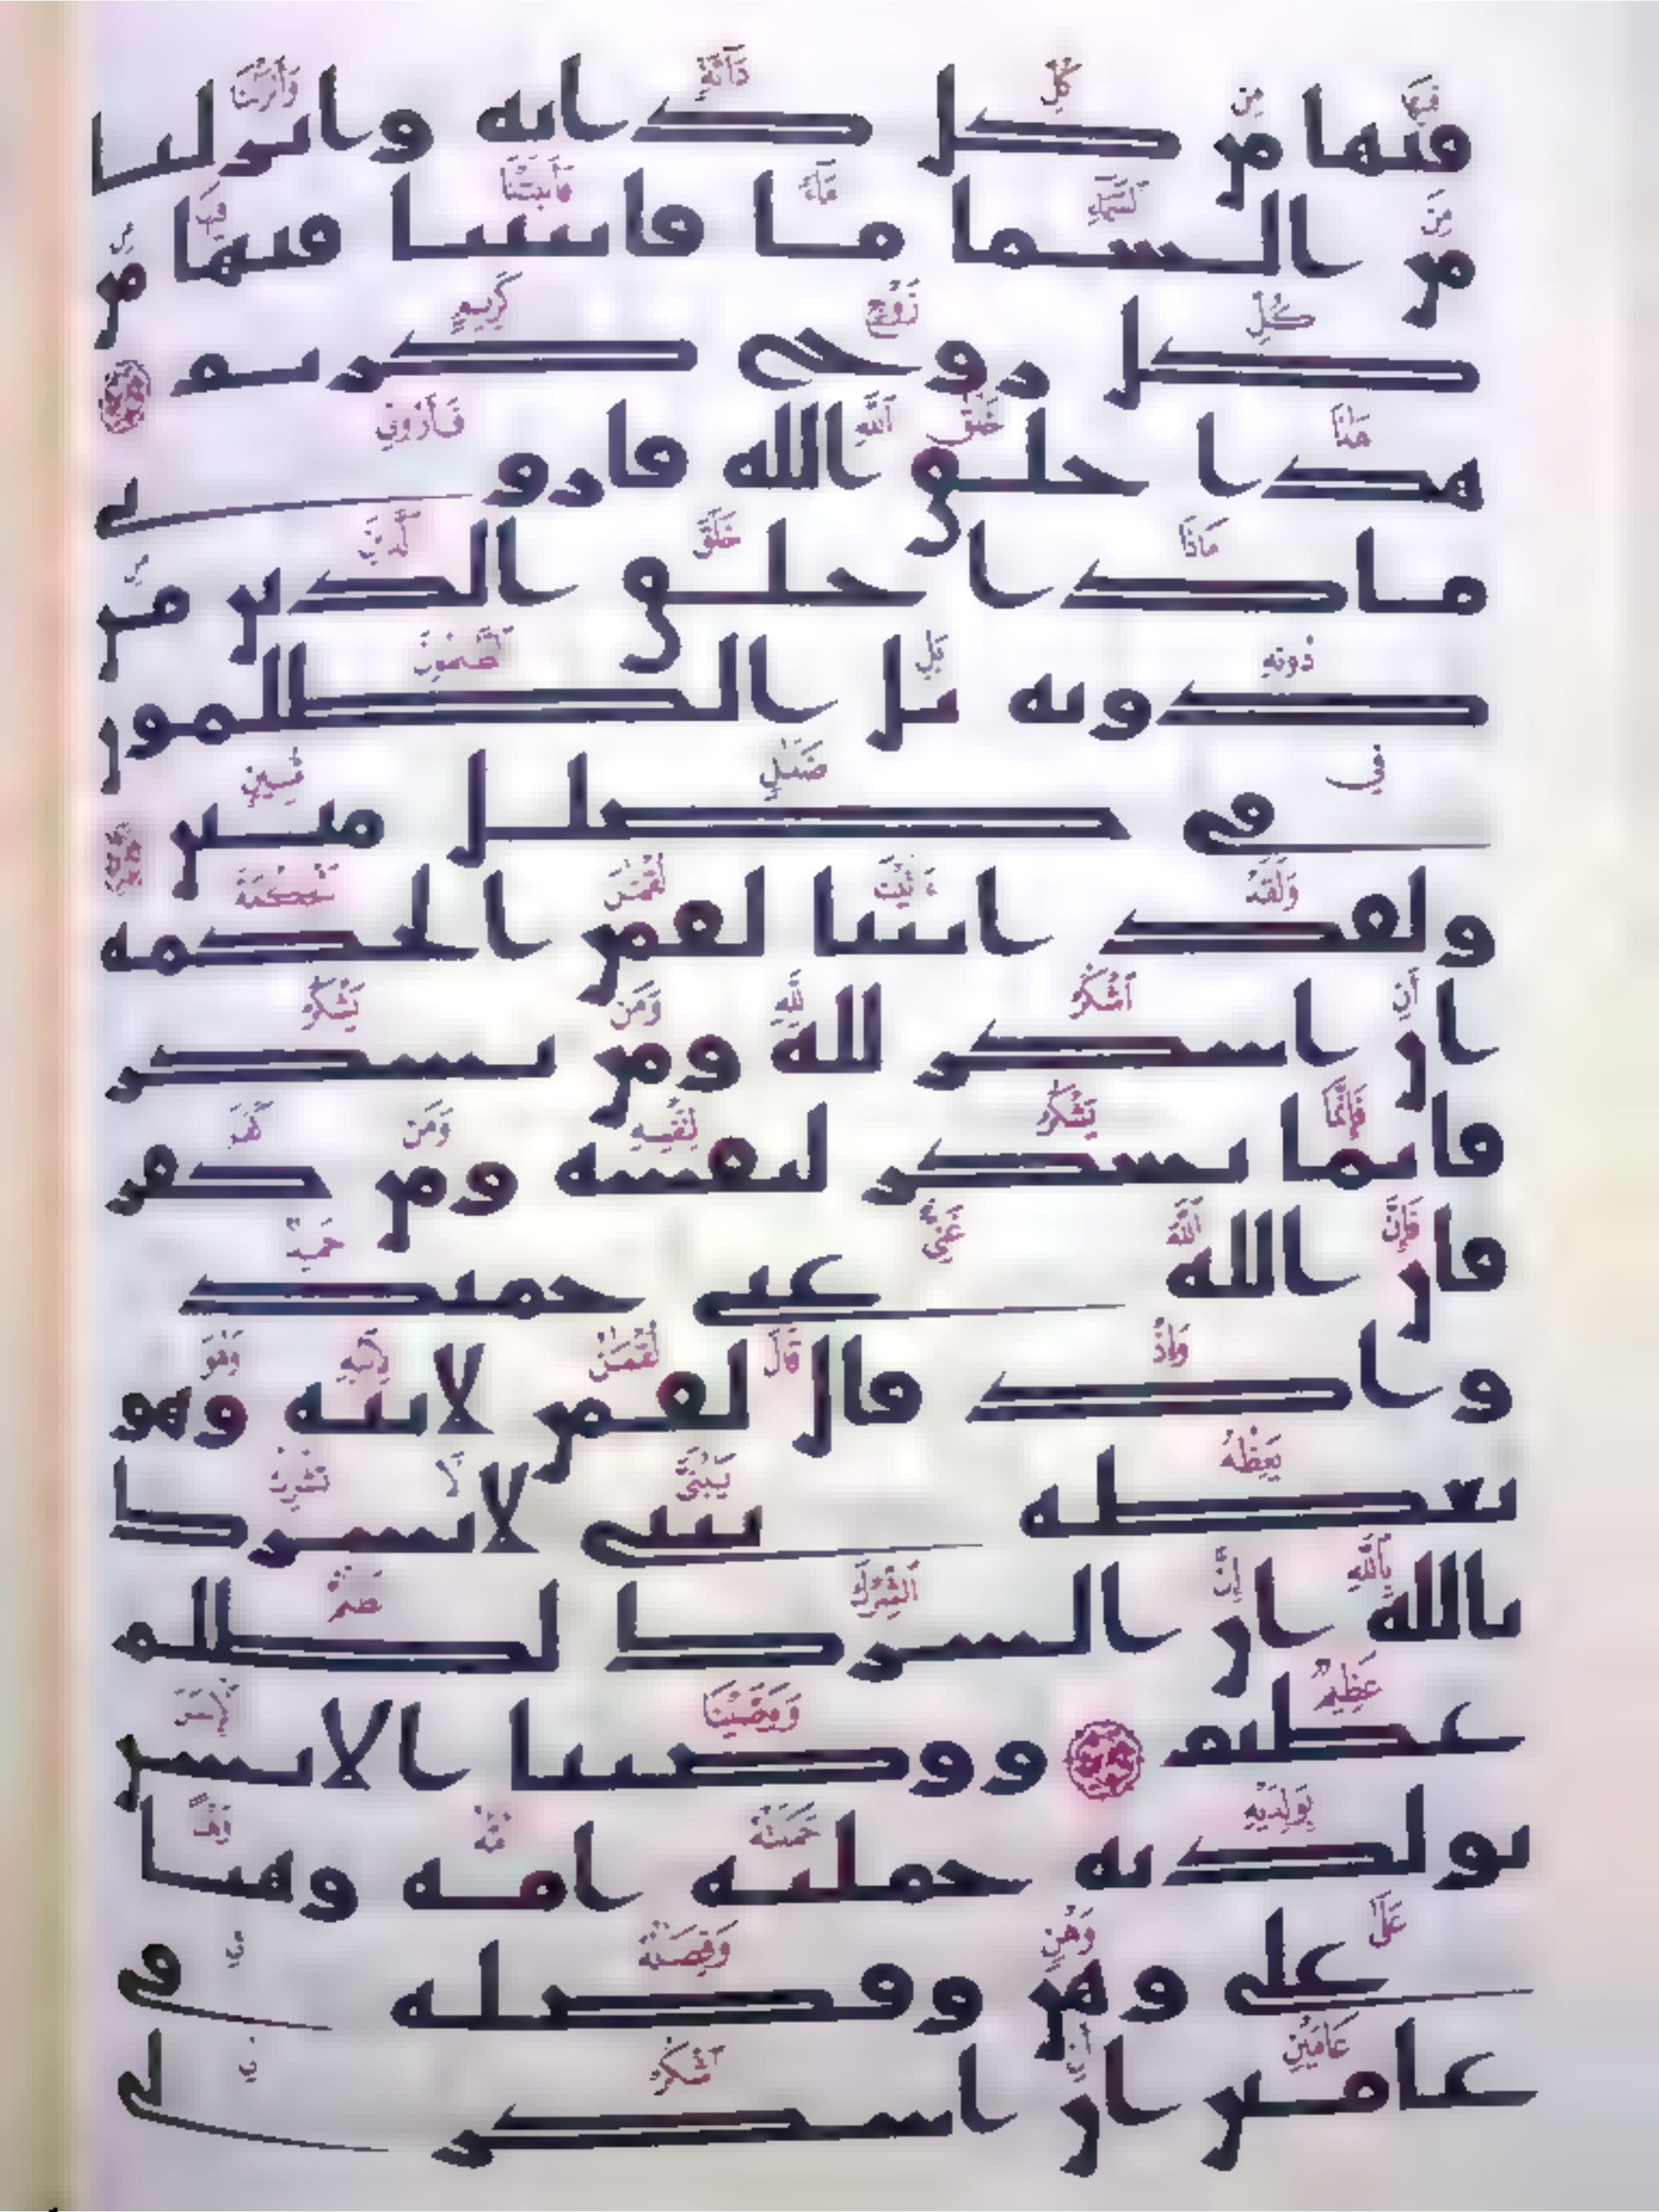 فيها من كل دابة وأنزلنا
من السما ما فأنبتنا فيها من
كل زوج كريم
هذا خلق الله فأروني
ماذا خلق الذين من
دونه بل الظلمون
في ضلل مبين
ولقد اتينا لقمن الحكمة
أن اشكر لله ومن يشكر
فإنما يشكر لنفسه ومن كفر
فإن الله غني حميد
وإذ قال لقمن لابنه وهو
يعظه يبني لا تشرك
بالله إن الشرك لظلم
عظيم ووصينا الانسن
بولديه حملته أمه وهنا
على وهن وفصله في
عامين أن اشكر لي